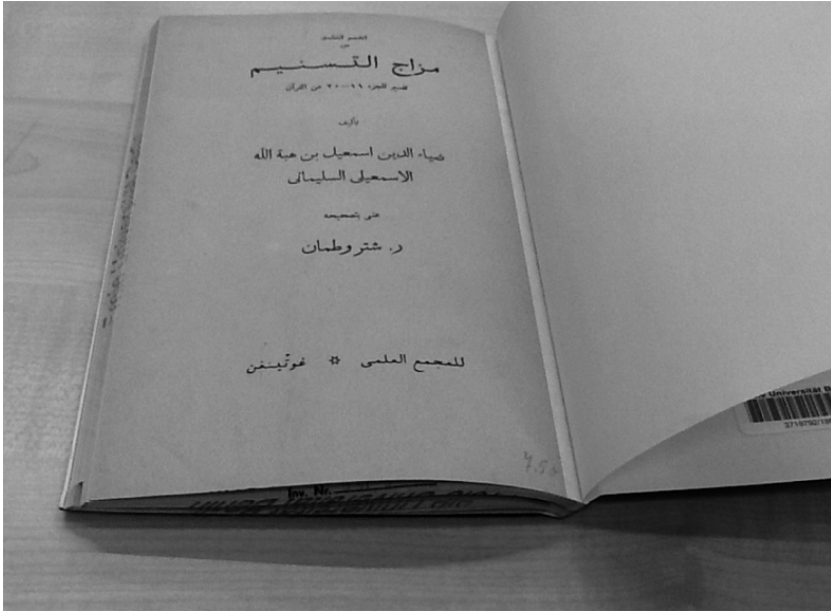 القسم الثالث
من
مزاج التسنيم
تفسير للجزء ١١—٢٠ من القرآن
تأليف
ضياء الدين اسمعيل بن هبة الله
الاسمعيلى السليمانى
عنى بتصحيحه
ر. شتروطمان
للمجمع العلمى ✡ غوتينغن
7.5
Universität B
Inv. Nr.